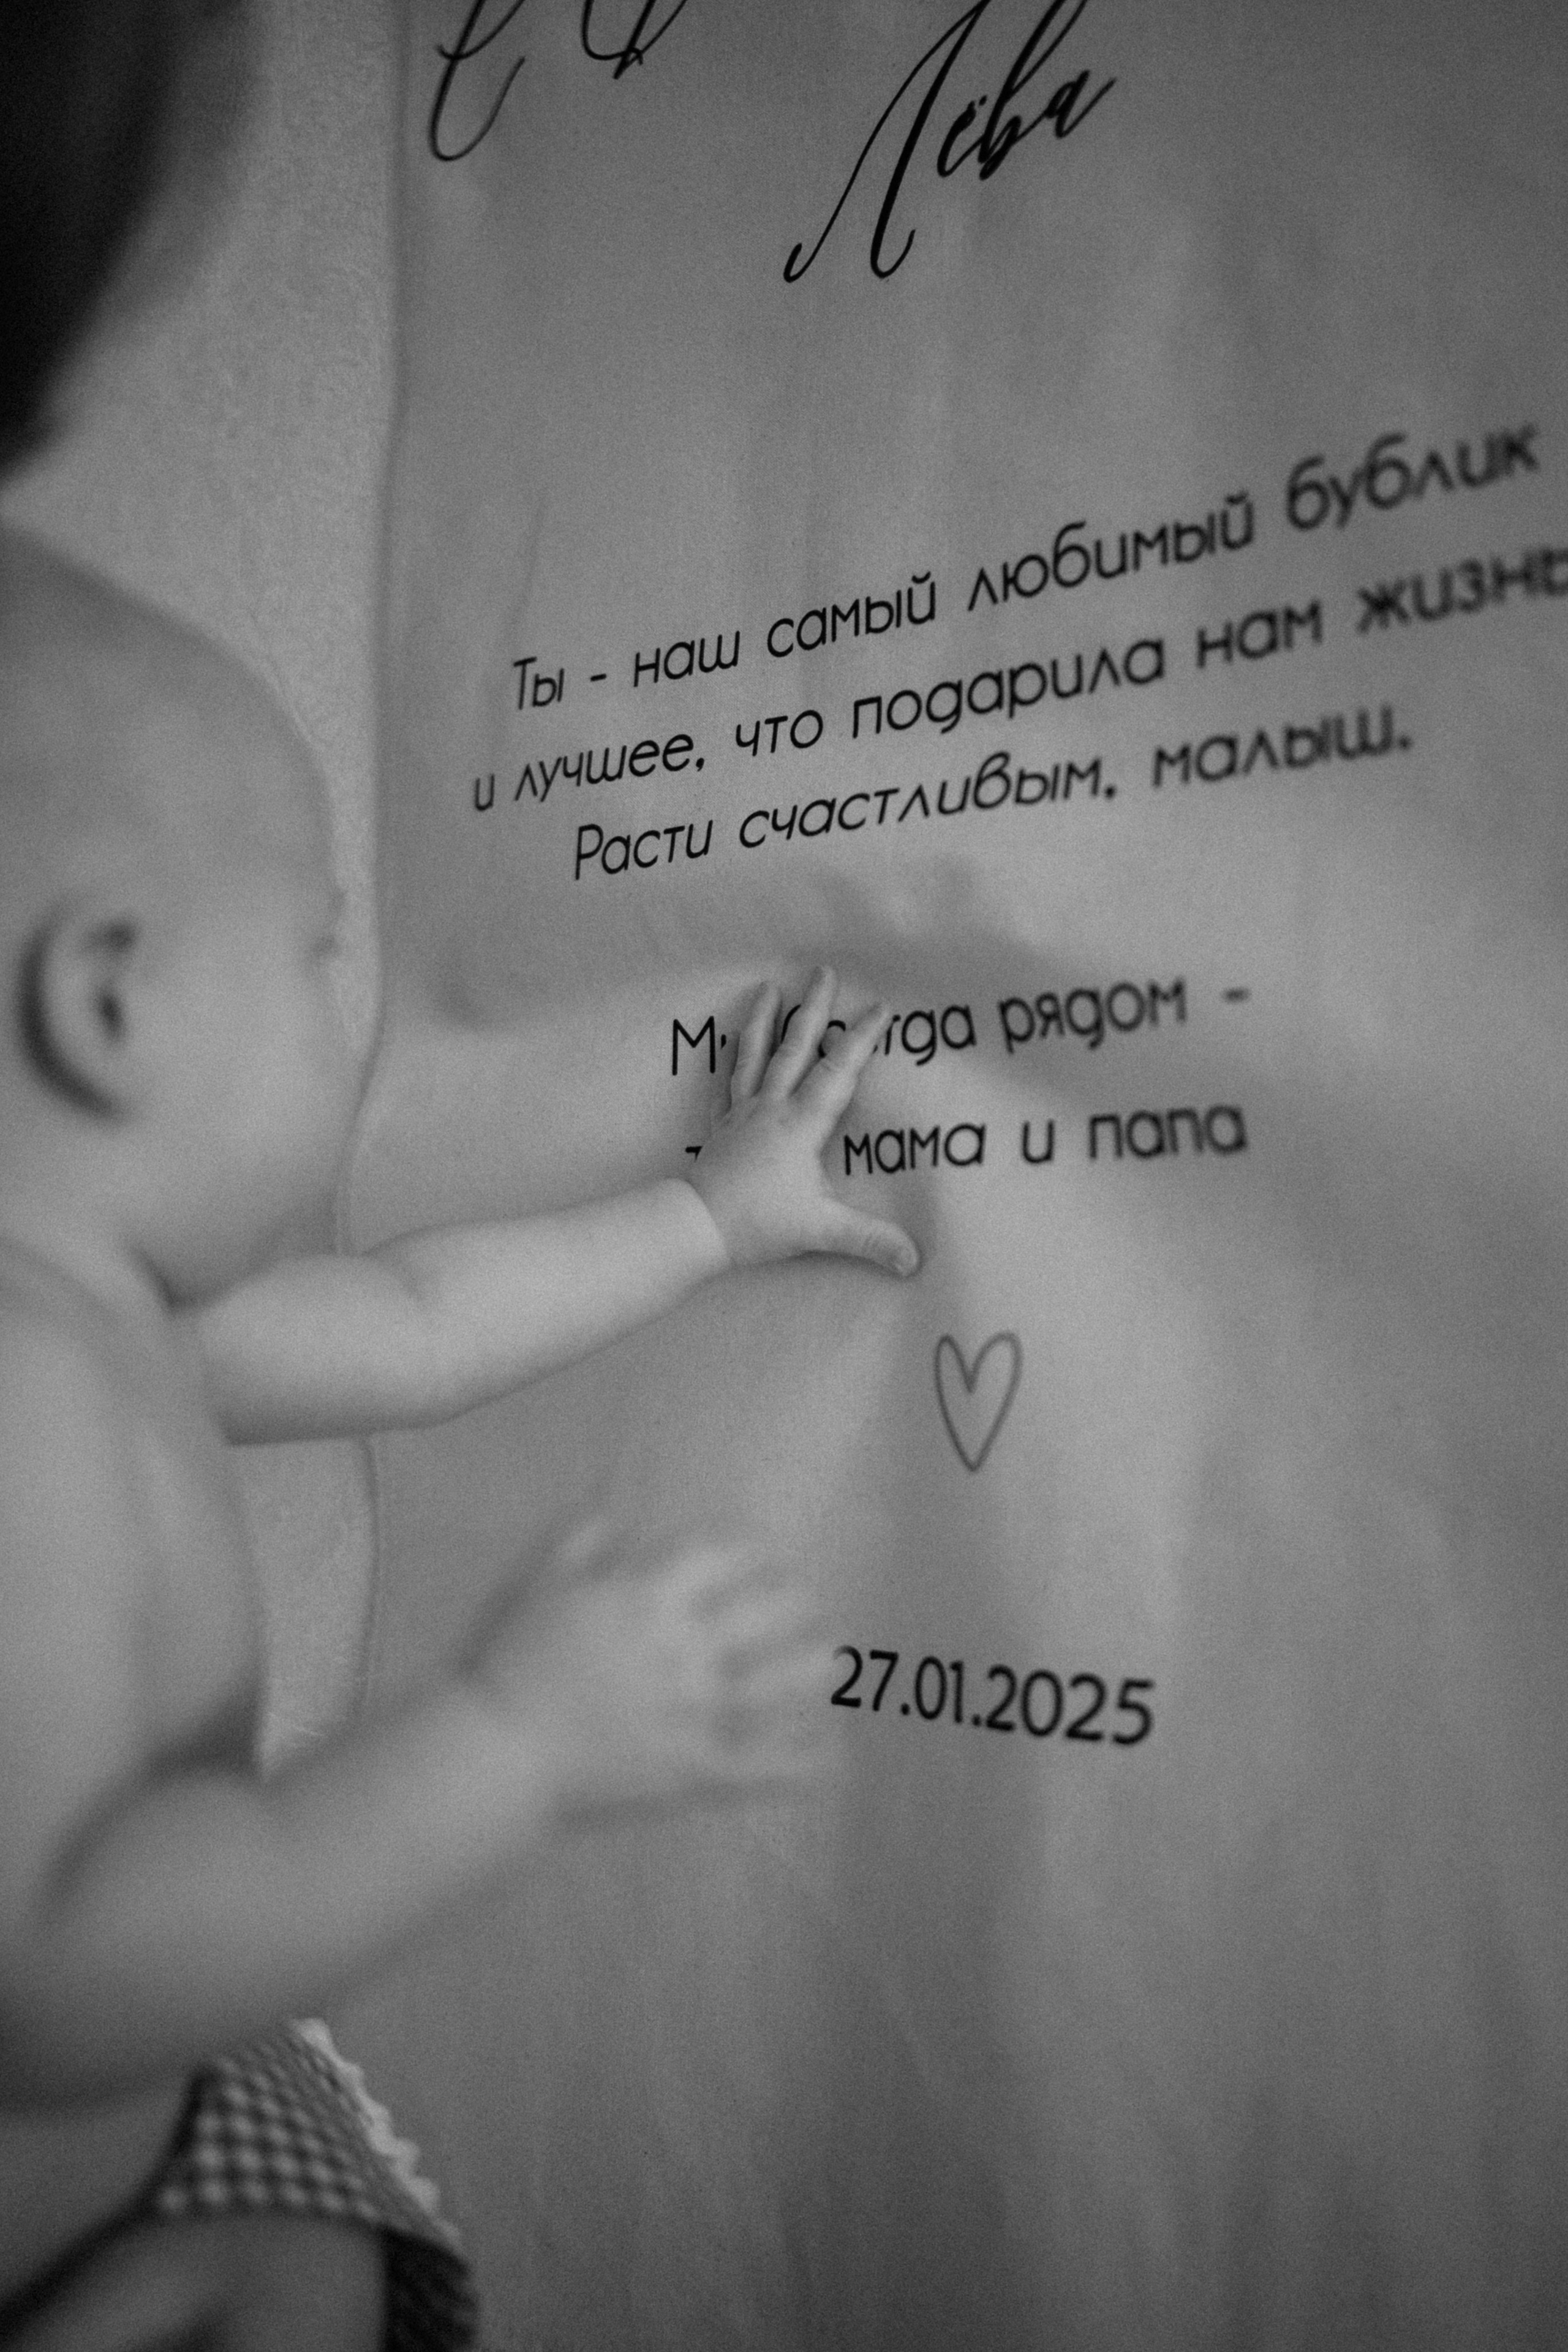 Лёва
Ты - наш самый любимый бублик
и лучшее, что подарила нам жизнь
Расти счастливым, малыш.
рядом -
мама и папа
27.01.2025